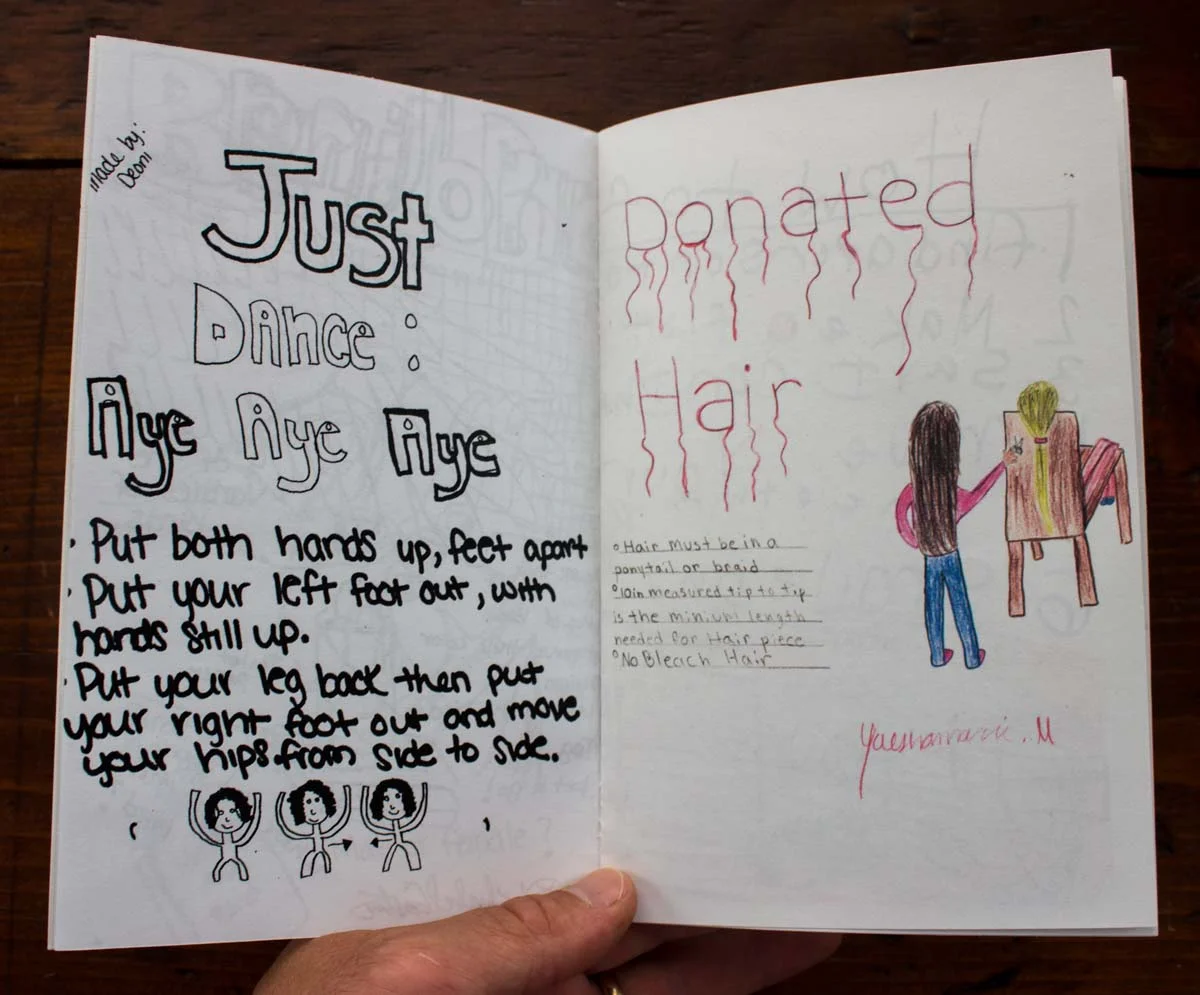 made by:
Deoni
Just
Dance:
Aye Aye Aye
· Put both hands up, feet apart
· Put your left foot out, with
hands still up.
· Put your leg back then put
your right foot out and move
your hips from side to side.
Donated
Hair
° Hair must be in a
ponytail or braid
° 10in measured tip to tip
is the length
needed for Hair piece
° No Bleach Hair
M